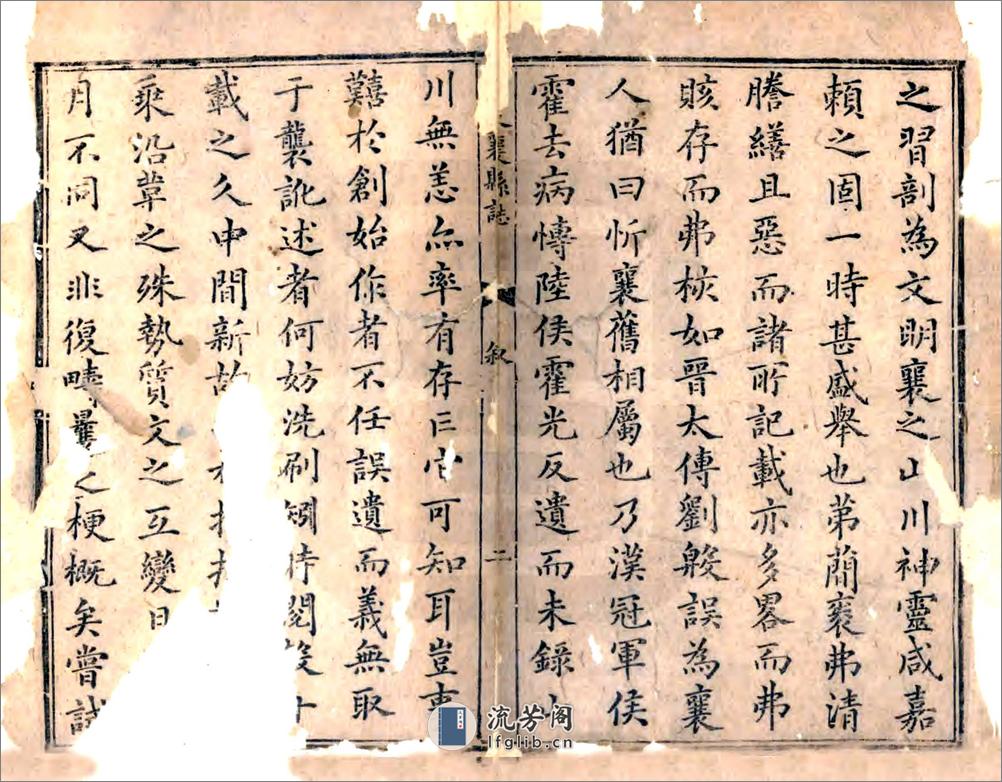 之習剖為文明襄之山川神靈咸嘉
賴之固一時甚盛舉也第蕳袠弗清
謄繕且惡而諸所記載亦多畧而弗
賅存而弗核如晉太傅劉般誤為襄
人猶曰忻襄舊相屬也乃漢冠軍侯
霍去病慱陸侯霍光反遺而未錄
襄縣誌
叙
二
川無恙亦率有存亡它可知耳豈
囏於創始作者不任誤遺而義無取
于襲訛述者何妨洗刷矧時閱
載之久中間新故
乘沿革之殊勢質文之互變日
月不同又非復疇曩之梗概矣嘗試
流芳阁
lfglib.cn